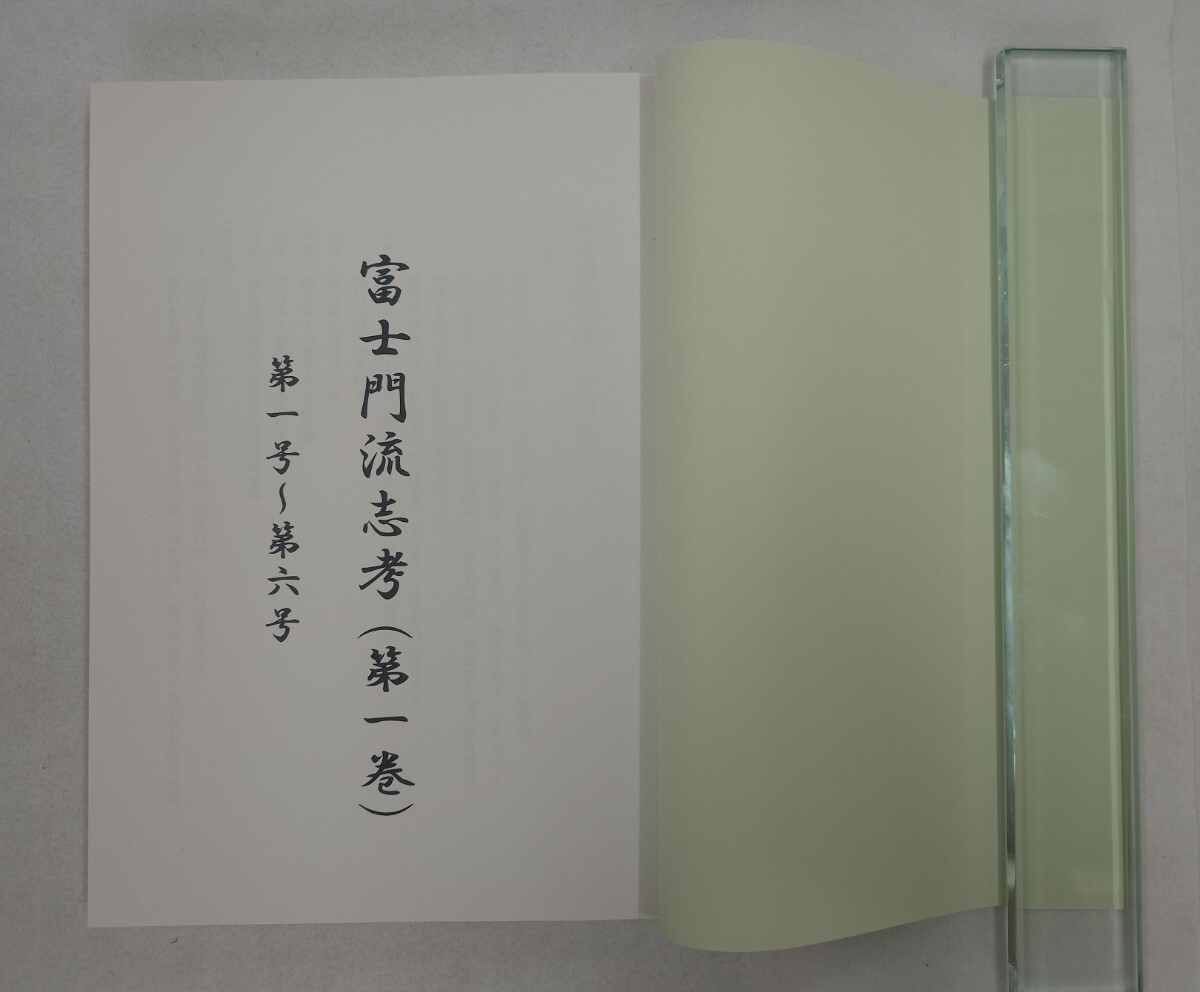 富士門流志考（第一巻）
第一号～第六号